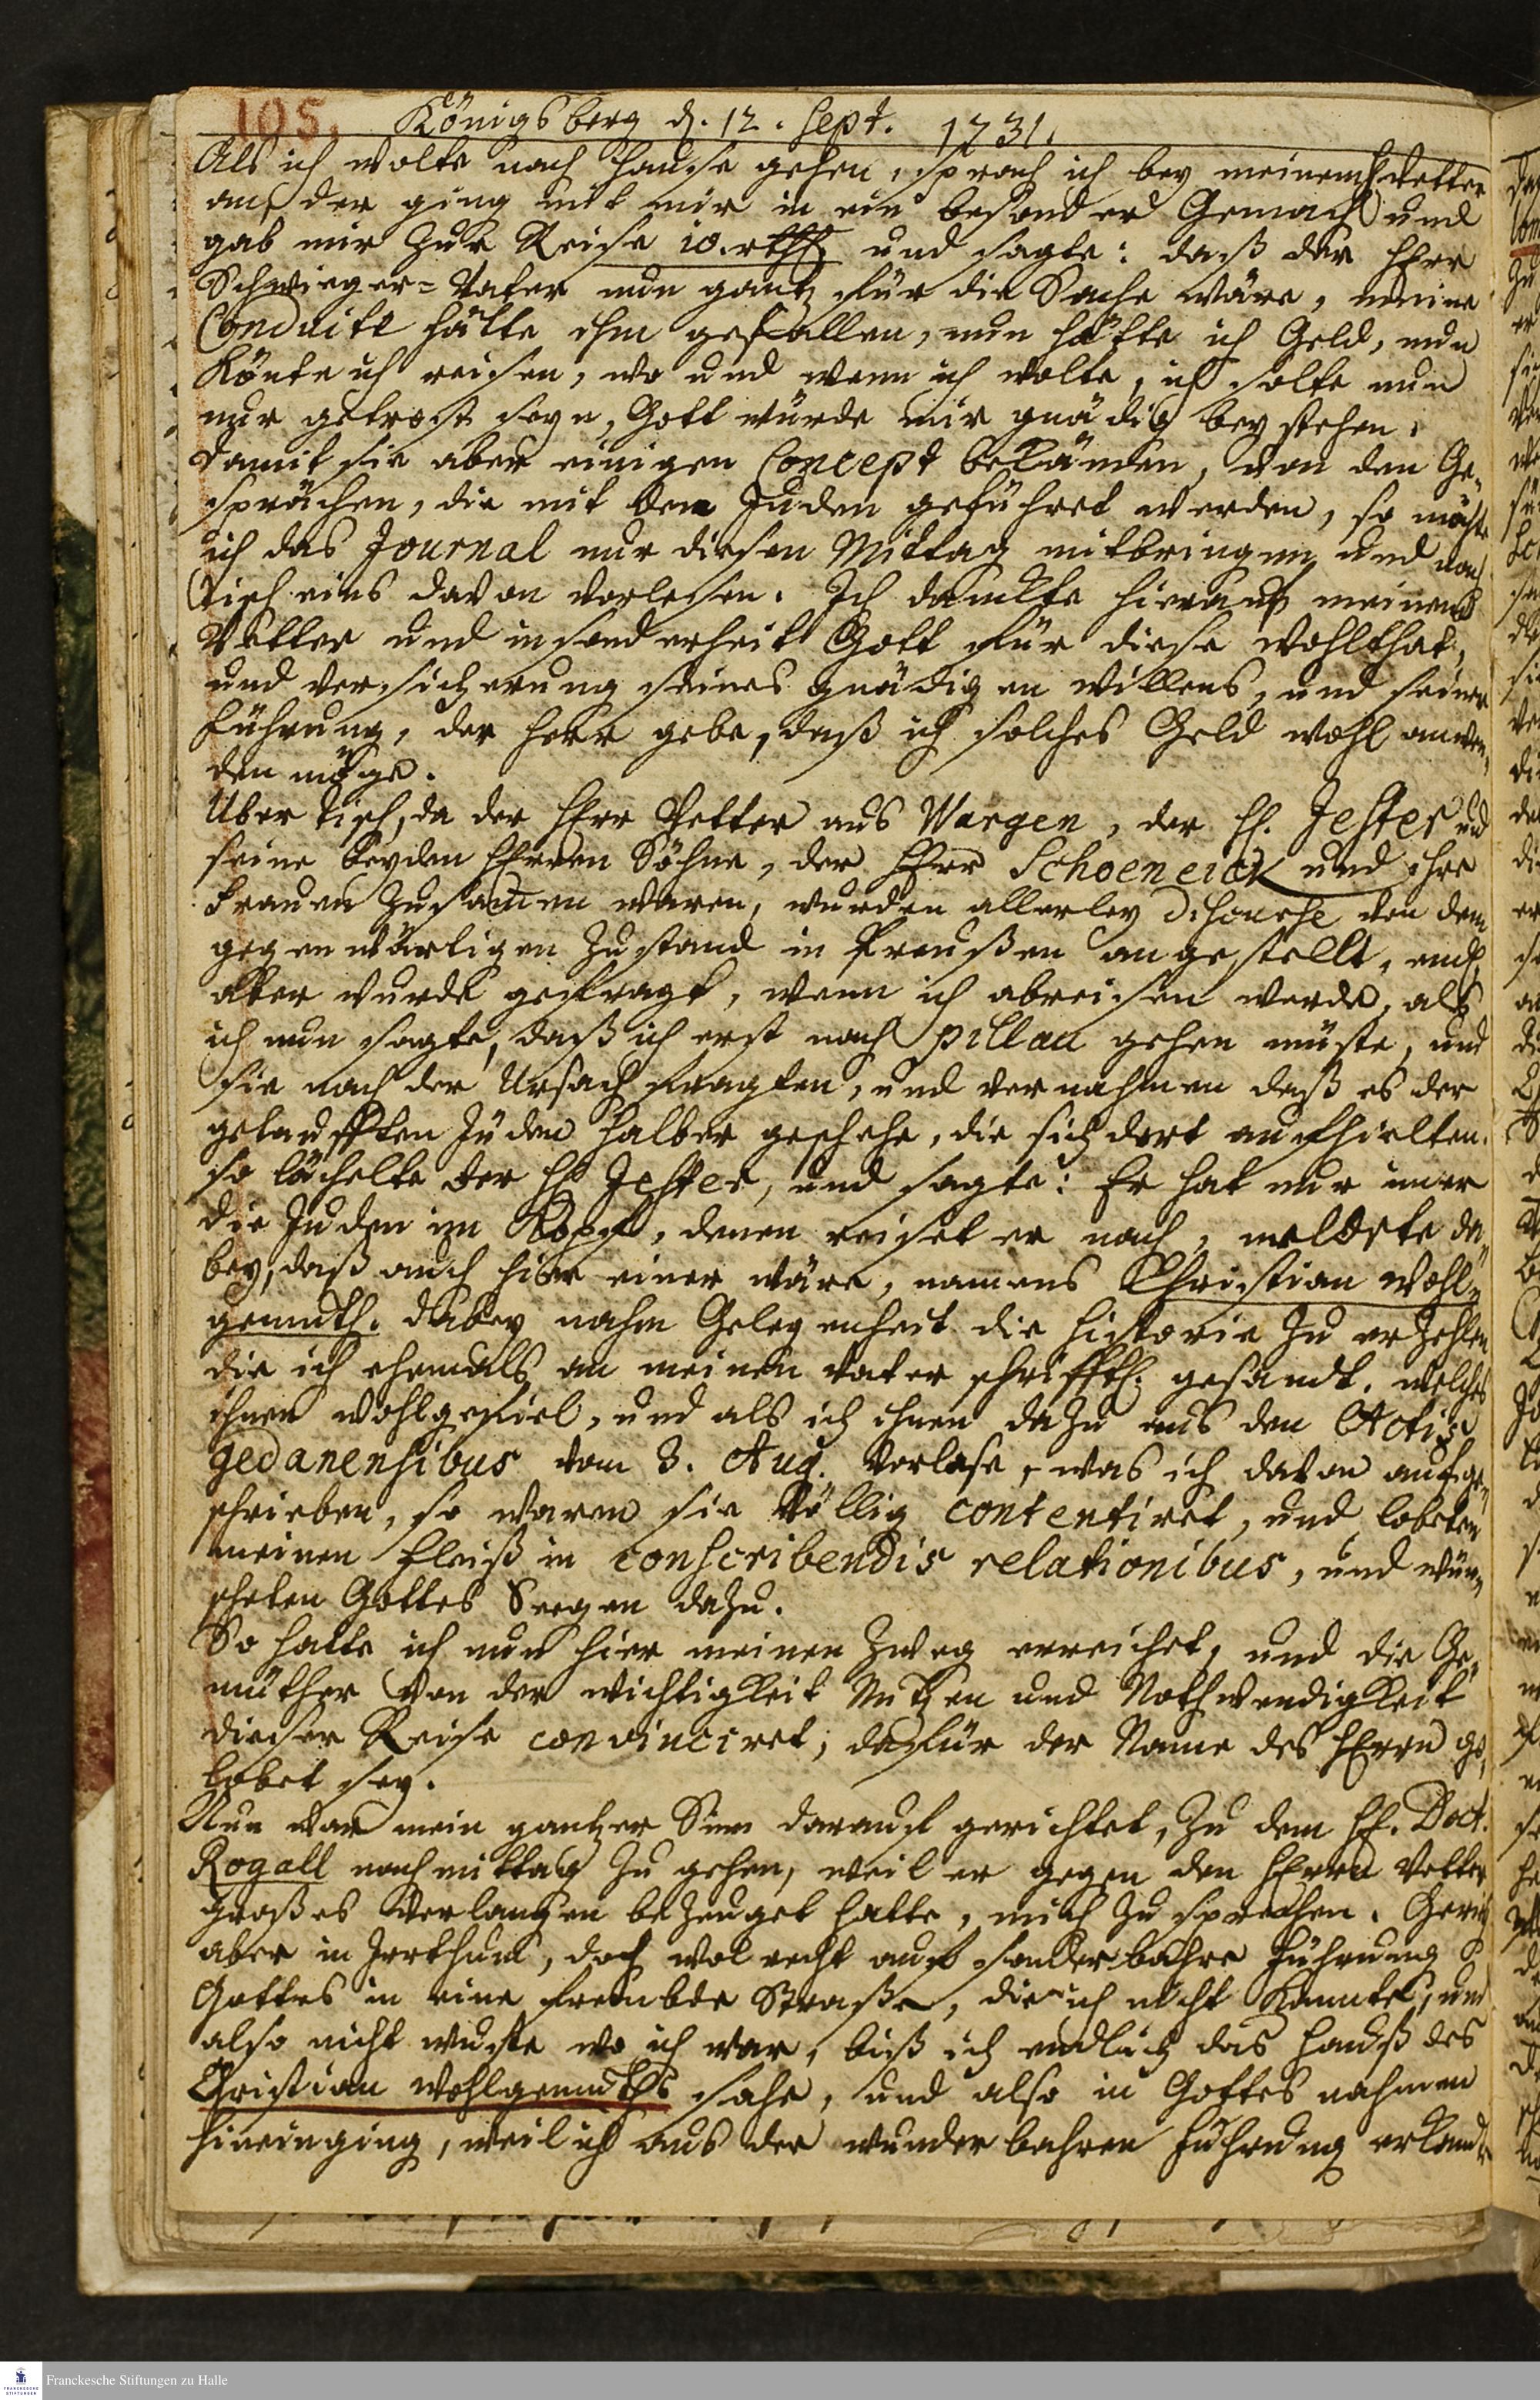 105. Königsberg d. 12. Sept. 1731.
Als ich wolte nach Hause gehen, sprach ich bey meinem H Vetter
an, der ging mit mir in ein besonder Gemach und
gab mir zur Reise 10. rthl und sagte: daß der Herr
Schwieger-Vater nun gantz für die Sache wäre, meine
Conduite hätte ihm gefallen, nun hätte ich Geld, nun
könte ich reisen, wo und wenn ich wolte, ich solte nun
nur getrost seyn, Gott würde mir gnädig beystehen.
Damit sie aber einigen Concept bekämen, von den Ge-
sprächen, die mit den Juden geführet werden, so möchte
ich das Journal nur diesen Mittag mitbringen und nach
Tisch eins davon vorlesen. Ich danckte hierauf meinem
Vetter und insonderheit Gott für diese Wohlthat,
und Versicherung seines gnädigen Willens, und seiner
Führung, der Herr gebe, daß ich solches Geld wohl anwen-
den möge.
Über Tisch, da der Herr Vetter aus Wargen, der H. Jester und
seine beyden Herren Söhne, der Herr Schoeneick und ihre
Frauen zusammen waren, wurden allerley Discourse von dem
gegenwärtigen Zustand in Preußen angestellt, endl
aber wurde gefragt, wenn ich abreisen werde, als
ich nun sagte, daß ich erst nach Pillau gehen müste, und
sie nach der Ursach fragten, und vernahmen daß es der
getaufften Juden halber geschehe, die sich dort aufhielten.
so lächelte der H Jester, und sagte: Er hat nur imer
die Juden im Kopf, denen reiset er nach, meldete da-
bey, daß auch hier einer wäre, namens Christian Wohl-
gemuth. Dabey nahm Gelegenheit die Historie zu erzehlen
die ich ehemals an meinen Vater schrifftl. gesandt. welches
ihnen wohlgefiel, und als ich ihnen dazu aus den Actis
Gedanensibus vom 3. Aug. vorlase, was ich davon aufge-
schrieben, so waren sie völlig contentiret, und lobeten
meinen Fleiß in conscribendis relationibus, und wün-
scheten Gottes Seegen dazu.
So hatte ich nun hier meinen Zweg erreichet, und die Ge-
müther von der Wichtigkeit Nutzen und Nothwendigkeit
dieser Reise convinciret; dafür der Name des Herrn ge-
lobet sey.
Nun war mein gantzer Sinn darauf gerichtet, zu dem H. Doct.
Rogall nachmittag zu gehen, weil er gegen den Herrn Vetter
großes Verlangen bezeuget hatte, mich zu sprechen. Gerieth
aber in Irrthum, doch wol recht auf sonderbahre Führung
Gottes in eine frembde Straße, die ich nicht kannte, und
also nicht wuste wo ich war, biß ich endlich das Hauß des
Christian Wohlgemuths sahe, und also in Gottes nahmen
hineinging, weil ich aus der wunderbahren Führung erkandte
Franckesche Stiftungen zu Halle